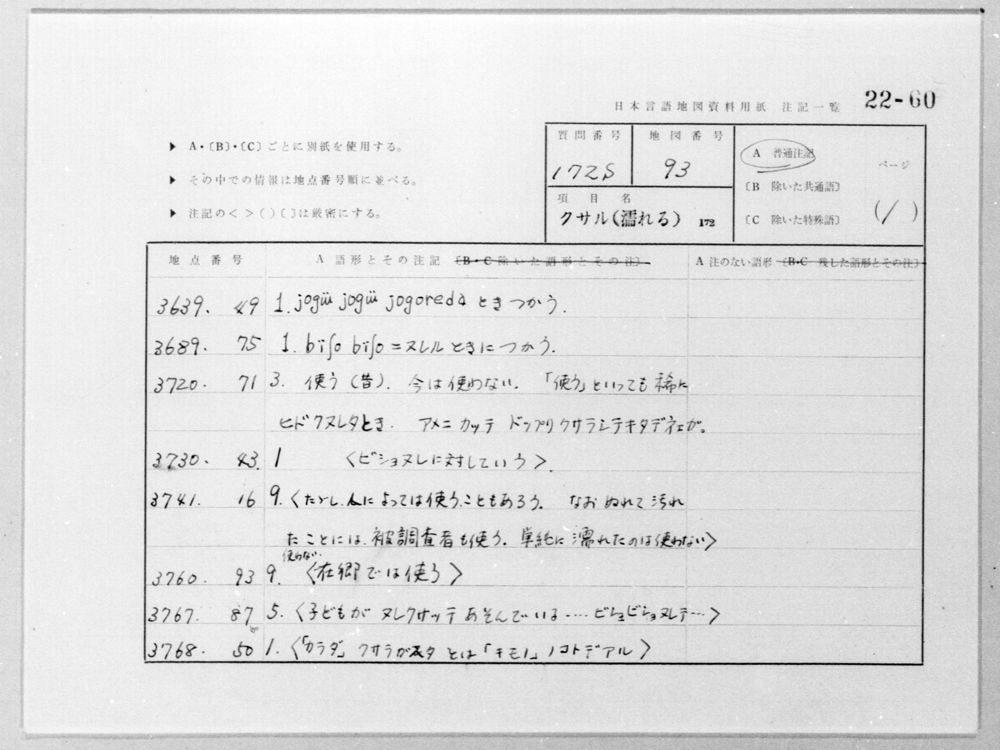 日本言語地図資料用紙 注記一覧 22-60
▶ A・〔B〕・〔C〕ごとに別紙を使用する。
▶ その中での情報は地点番号順に並べる。
▶ 注記の< >( )〔 〕は厳密にする。
質問番号 地図番号
172S 93
項目名
クサル(濡れる) 172
A 普通注記
〔B 除いた共通語〕
〔C 除いた特殊語〕
ページ
(1)
地点番号 A 語形とその注記 〔B・C 除いた語形とその注〕 A 注のない語形 〔B・C 残した語形とその注〕
3639. 49 1. jogüï jogüï jogoreda ときつかう.
3689. 75 1. bïʃo bïʃo=ヌレル ときにつかう.
3720. 71 3. 使う(昔). 今は使わない. 「使う」といっても稀に
ヒドクヌレタとき. アメニ カッテ ドップリクサラシテキタデネェか。
3730. 43. 1 〈ビショヌレに対していう〉.
3741. 16 9. 〈ただし、人によっては使うこともあろう. なおぬれて汚れ
たことには、被調査者も使う. 単純に濡れたのは使わない〉
3760. 93 9. 使わない. 〈在郷では使う〉
3767. 87 5. 〈子どもが ヌレクサッテ あそんでいる……ビショビショヌレテ…〉
3768. 50 1. 〈「カラダ」クサラ とは「キモノ」ノコトデアル〉